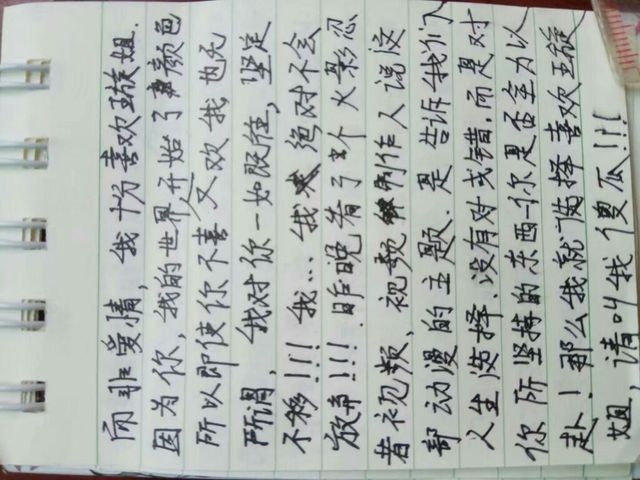 而非爱情，我十分喜欢璇姐.
因为你，我的世界开始了颜色
所以即使你不喜欢我也无
所谓，我对你一如既往，坚定
不移!!!我...我绝对不会
放弃!!!.昨晚看了个火影忍
者视频，视频制作人说这
部动漫的主题.是告诉我们
人生选择.没有对或错.而是对
你所坚持的东西-你是否全力以
赴！那么我就选择喜欢璇
姐，请叫我傻瓜!!!